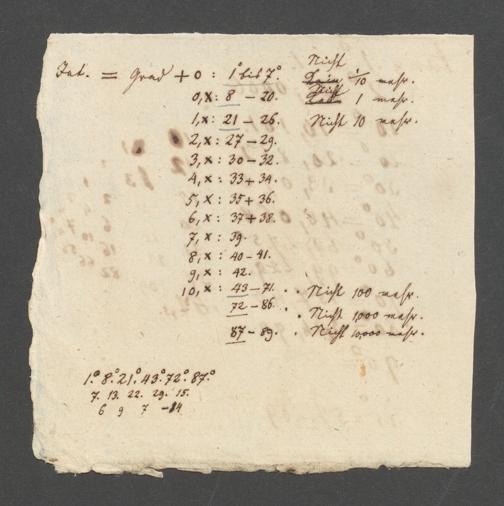 Int. = Grad + 0 : 1° bis 7°. Nicht 1/10 mehr.
0, x : 8 – 20. Nicht 1 mehr.
1, x : 21 – 26. Nicht 10 mehr.
2, x : 27 – 29.
3, x : 30 – 32.
4, x : 33 + 34.
5, x : 35 + 36.
6, x : 37 + 38.
7, x : 39.
8, x : 40 – 41.
9, x : 42.
10, x : 43 – 71. . . Nicht 100 mehr.
72 – 86. . . Nicht 1,000 mehr.
87 – 89. . Nicht 10,000 mehr.
1.° 8.° 21.° 43.° 72.° 87.°
7. 13. 22. 29. 15.
6 9 7 – 14